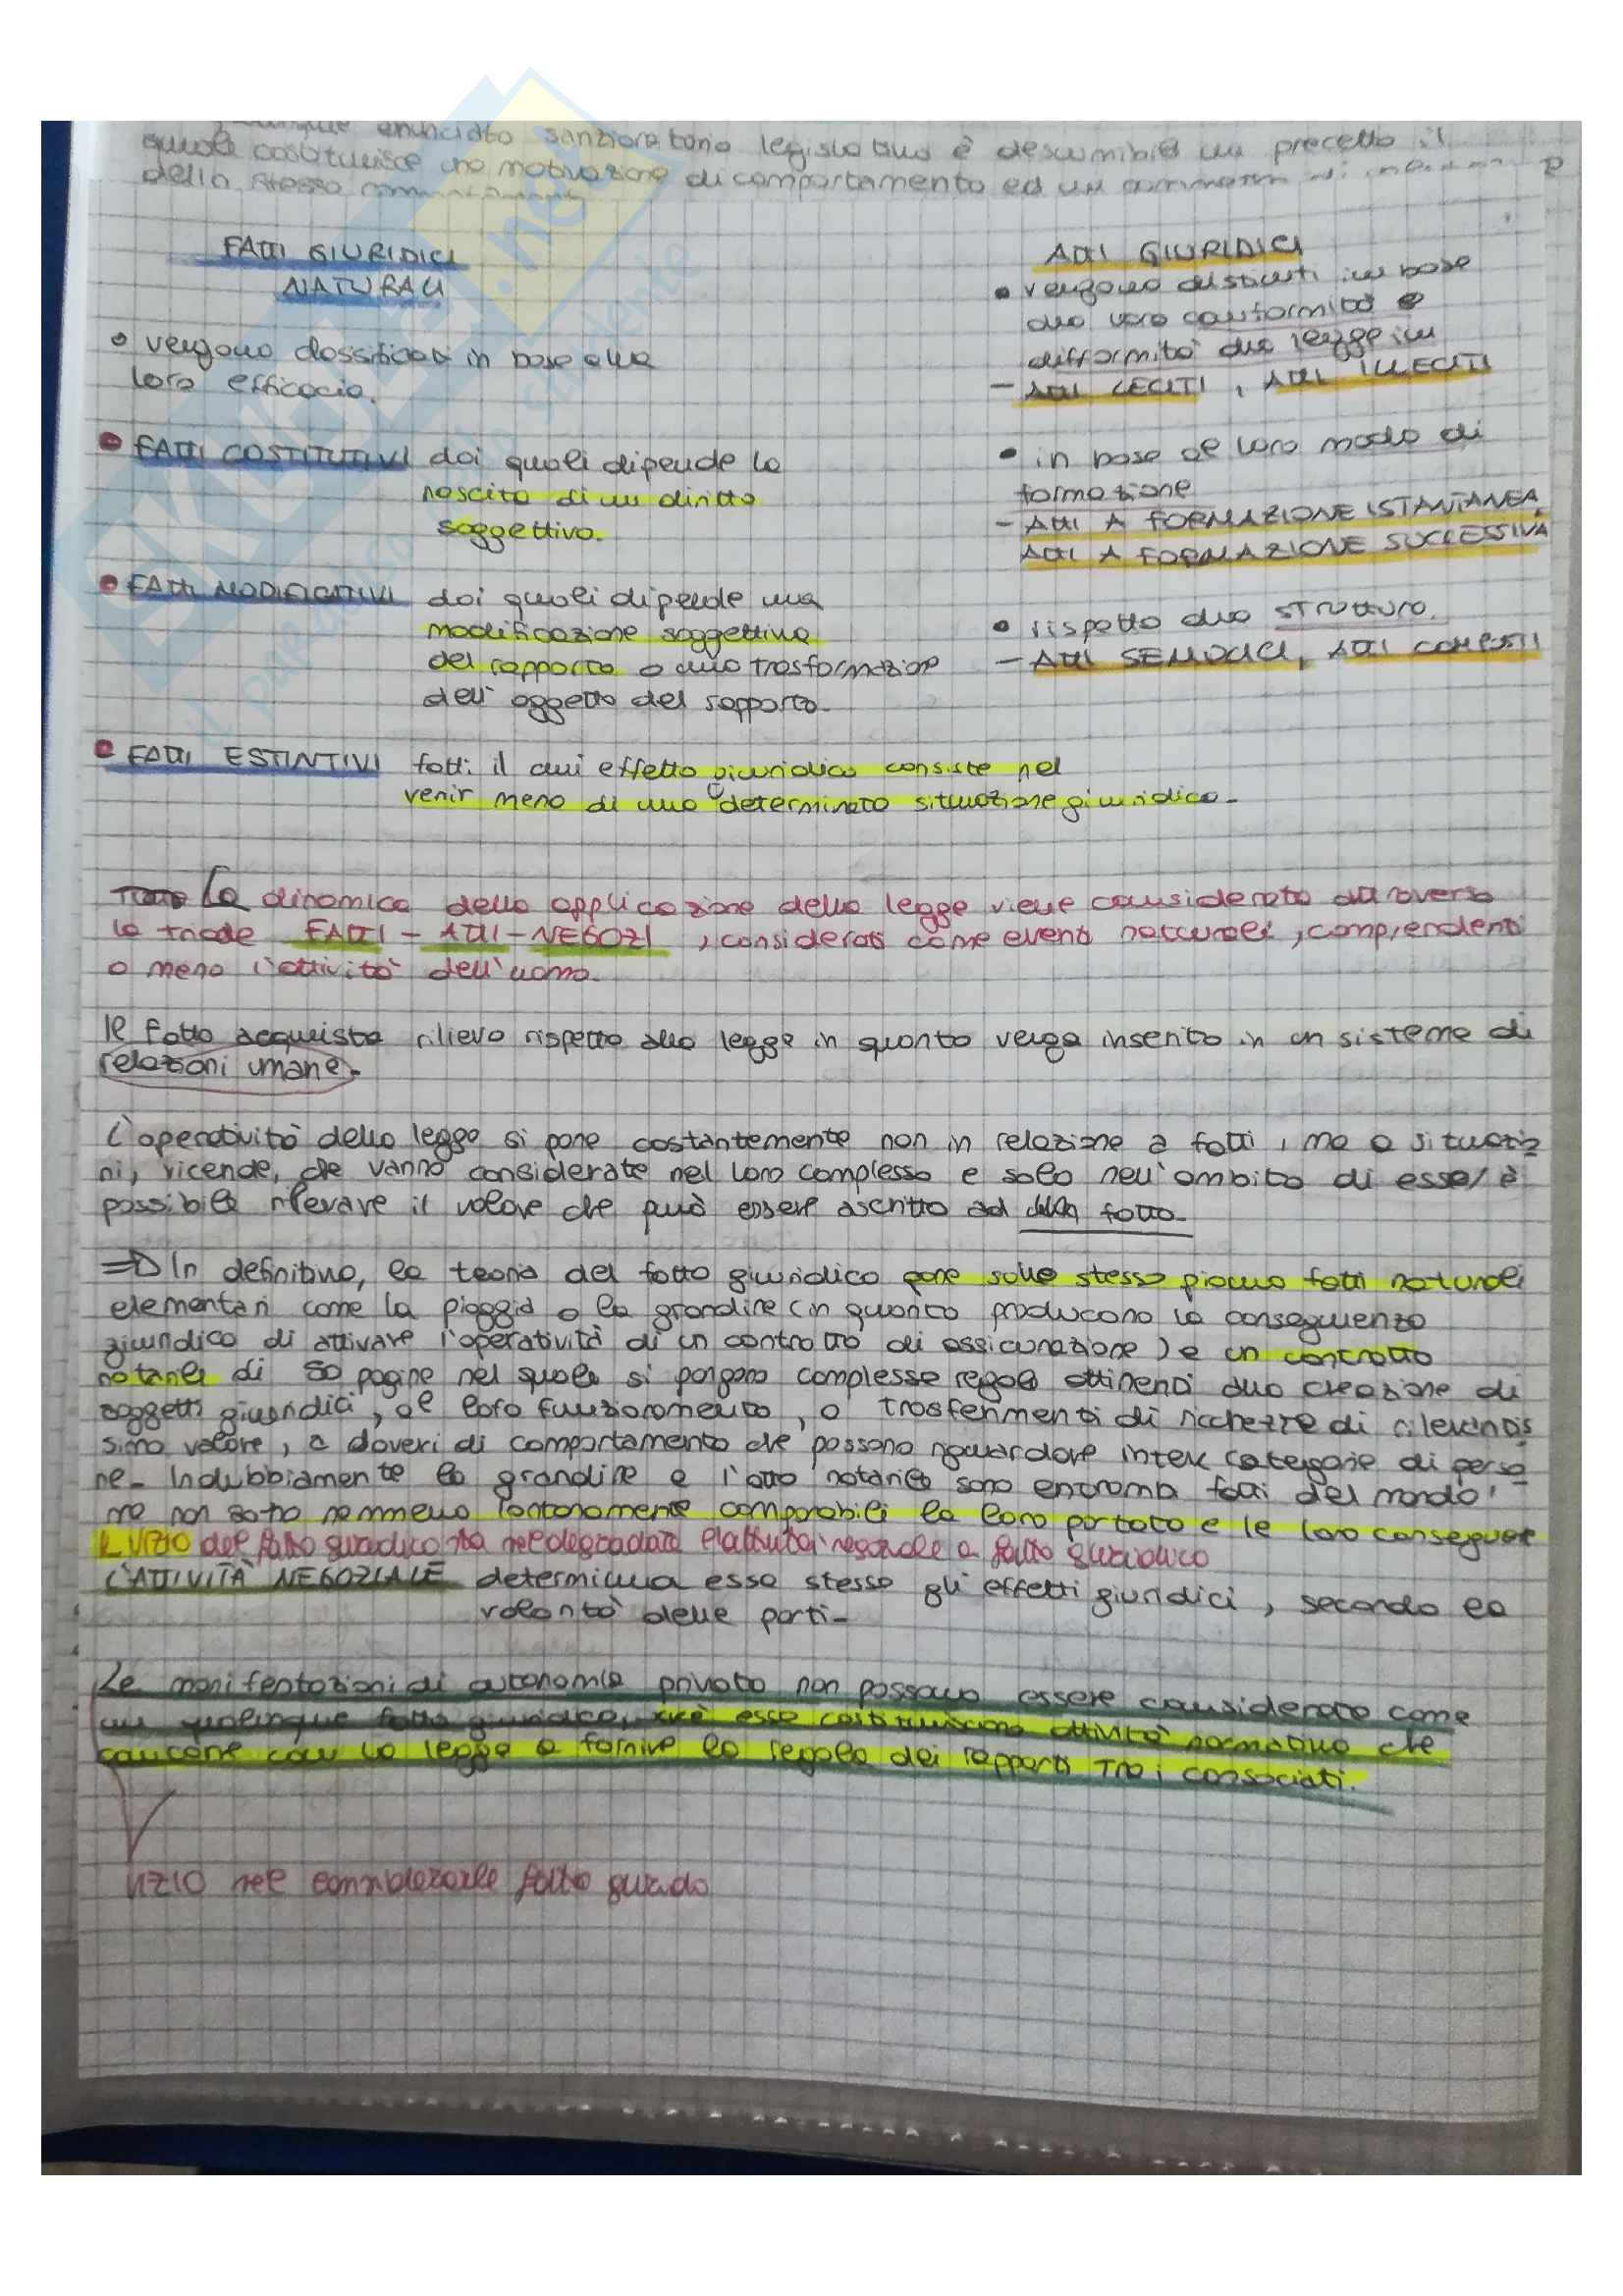 enunciato sanzionatorio legislativo è desumibile un precetto il
quale costituisce una motivazione di comportamento ed un
dello stesso
FATTI GIURIDICI
NATURALI
• vengono classificati in base alla
loro efficacia.
• FATTI COSTITUTIVI dai quali dipende la
nascita di un diritto
soggettivo.
• FATTI MODIFICATIVI dai quali dipende una
modificazione soggettiva
del rapporto o una trasformazione
dell'oggetto del rapporto.
• FATTI ESTINTIVI fatti il cui effetto giuridico consiste nel
venir meno di una determinata situazione giuridica.
ATTI GIURIDICI
• vengono distinti in base
alla loro conformità e
difformità alla legge in
- ATTI LECITI, ATTI ILLECITI
• in base al loro modo di
formazione
- ATTI A FORMAZIONE ISTANTANEA,
ATTI A FORMAZIONE SUCCESSIVA
• rispetto alla struttura.
- ATTI SEMPLICI, ATTI COMPOSTI
La dinamica della applicazione della legge viene considerata attraverso
la triade FATTI - ATTI - NEGOZI, considerati come eventi naturali, comprendenti
o meno l'attività dell'uomo.
Il fatto acquista rilievo rispetto alla legge in quanto venga inserito in un sistema di
relazioni umane.
L'operatività della legge si pone costantemente non in relazione a fatti, ma a situazio
ni, vicende, che vanno considerate nel loro complesso e solo nell'ambito di esse/è
possibile rilevare il valore che può essere ascritto ad fatto.
=> In definitiva, la teoria del fatto giuridico pone sullo stesso piano fatti naturali
elementari come la pioggia o la grandine (in quanto producono la conseguenza
giuridica di attivare l'operatività di un contratto di assicurazione) e un contratto
notarile di 50 pagine nel quale si pongono complesse regole attinenti alla creazione di
soggetti giuridici, al loro funzionamento, a trasferimenti di ricchezze di rilevantis
simo valore, a doveri di comportamento che possono riguardare intere categorie di perso
ne. Indubbiamente la grandine e l'atto notarile sono entrambi fatti del mondo,
ma non sono nemmeno lontanamente comparabili la loro portata e le loro conseguenze
IL VIZIO del fatto giuridico sta nel degradare l'attività negoziale a fatto giuridico
L'ATTIVITÀ NEGOZIALE determina essa stessa gli effetti giuridici, secondo la
volontà delle parti.
Le manifestazioni di autonomia privata non possono essere considerate come
un qualunque fatto giuridico, esse costituiscono attività normativa che
concorre con la legge a fornire la regola dei rapporti tra i consociati.
VIZIO nel considerarle fatto